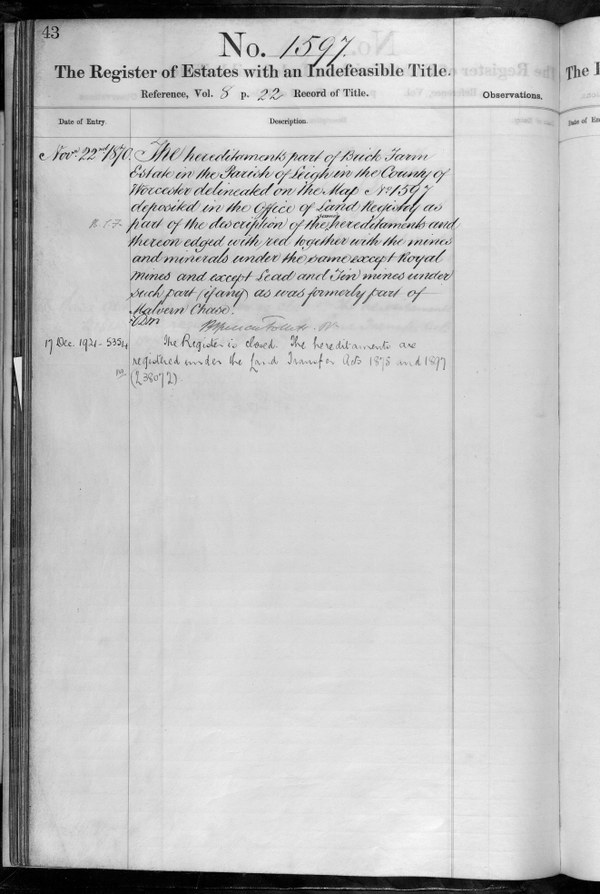 43
No. 1597
The Register of Estates with an Indefeasible Title.
Reference, Vol. 8 p. 22 Record of Title.
Observations.
Date of Entry.
Description.
Novr. 22nd 1870.
The hereditaments part of Brick Farm
Estate in the Parish of Leigh in the County of
Worcester delineated on the Map No 1597
deposited in the Office of Land Registry as
part of the description of the same hereditaments and
thereon edged with red together with the mines
and minerals under the same except Royal
mines and except Lead and Tin mines under
such part (if any) as was formerly part of
Malvern Chase.
17 Dec. 1921 - 5354
The Register is closed. The hereditaments are
registered under the Land Transfer Acts 1875 and 1897
(238072)
The R
Date of En